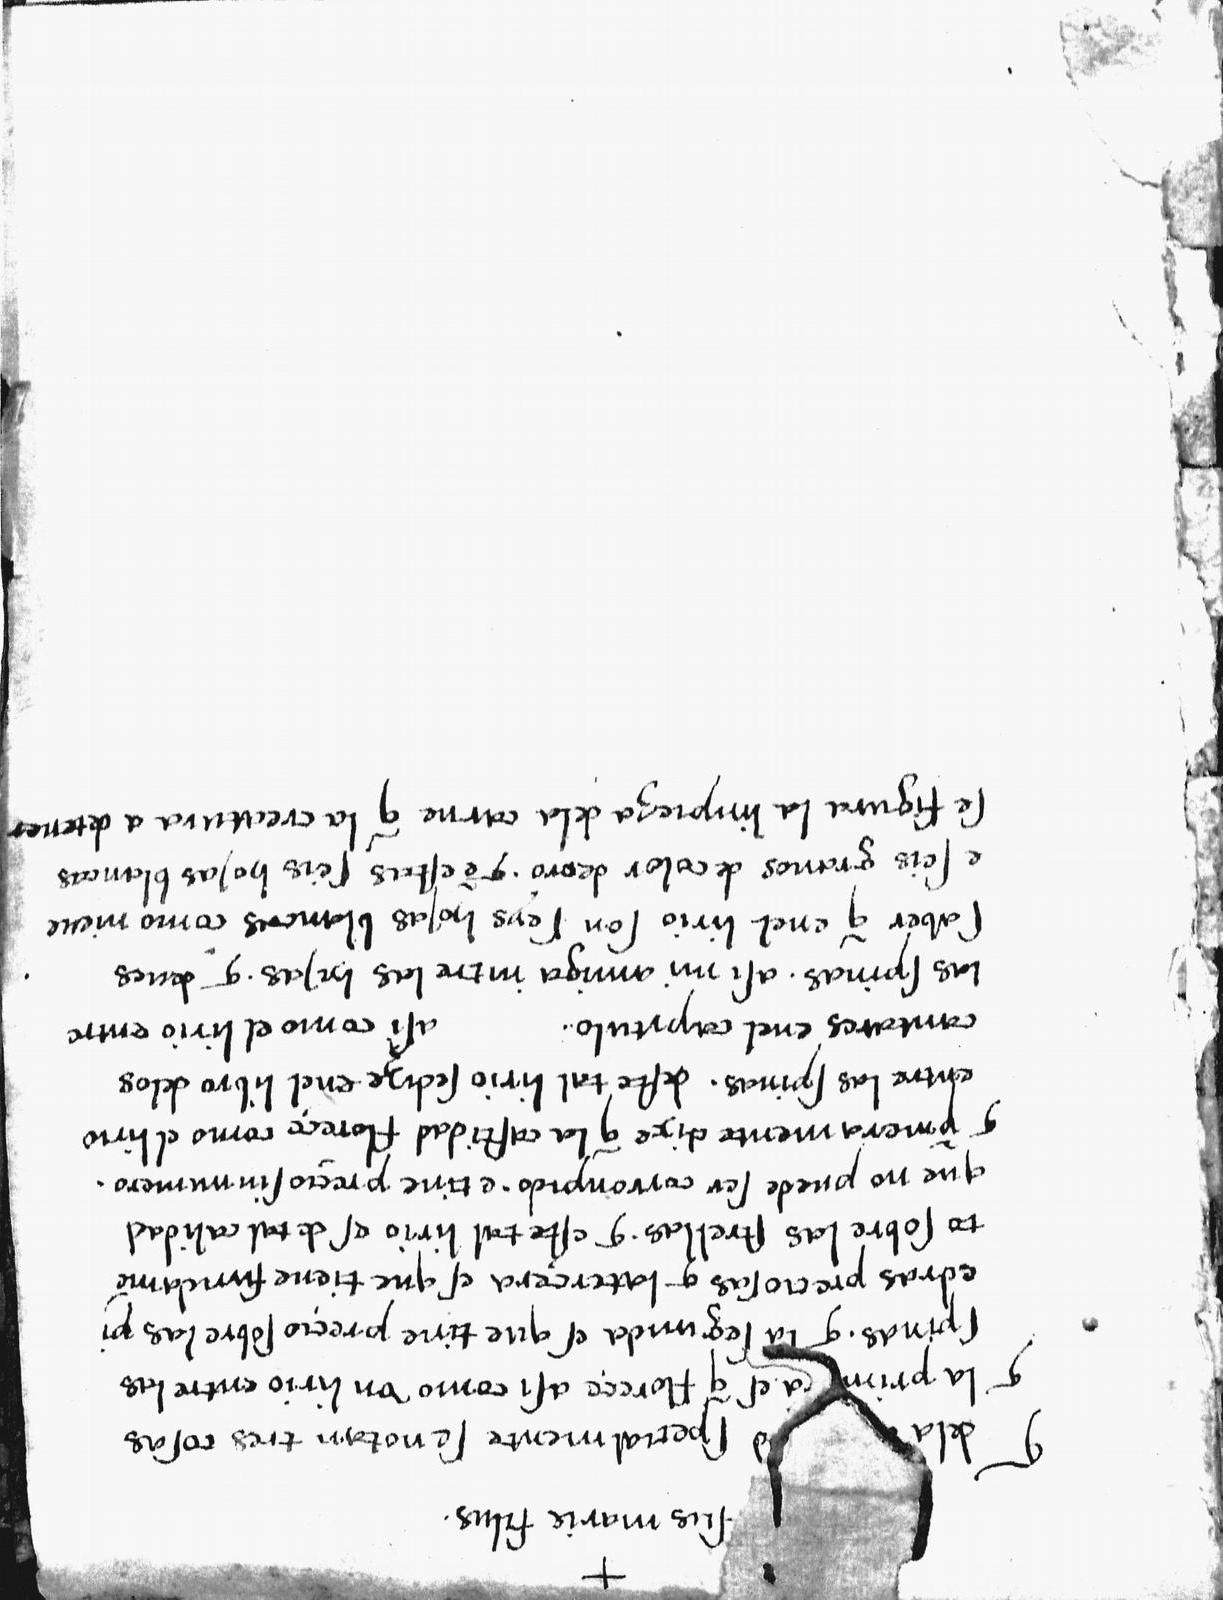 +
ſus marie filius.
¶ dela d ſpecialmente ſe notan tres coſas
¶ la prim a eſ q̄ florece aſi como vn lirio entre las
ſpinas. ¶ la ſegunda eſ que tine precio ſobre las pi
edras precioſas ¶ la tercera eſ que tiene fundamē
to ſobre las ſtrellas. ¶ eſte tal lirio eſ de tal calidad
que no puede ſer corronpido. e tine precio ſin numero.
¶ pͥmeramente dize q̄ la caſtidad florece como el lirio
entre las ſpinas. deſte tal lirio ſe dize enel libro delos
cantares enel capitulo.. aſi como el lirio entre
las ſpinas. aſi mi amiga intre las hijas. ¶ deues
ſaber q̄ enel lirio ſon ſeys hojas blancas como nieue
e ſeis granos de color deoro. ¶ ē eſtas ſeis hojas blancas
ſe figura la linpieza dela carne q̄ la creatura a de tener